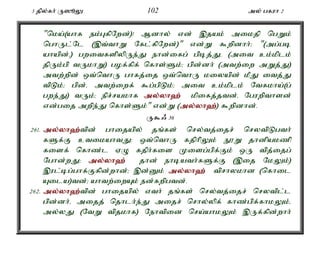 3 தில்கர் ருஸூலு 102 அல் பகரா 2
"மெய்(யாக நம்புகிறேன்): ஆனால் என் இதயம் அமைதி பெறும்
பொருட்டே (இவ்வாறு கேட்கிறேன்)" என்று கூறினார்; "(அப்படி
யாயின்,) பறவைகளிலிருந்து நான்கைப் பிடித்து, (அவை உம்மிடம்
திரும்பி வருமாறு) பழக்கிக் கொள்ளும்; பின்னர் (அவற்றை அறுத்து)
அவற்றின் ஒவ்வொரு பாகத்தை ஒவ்வொரு மலையின் மீது வைத்து
விடும்; பின், அவற்றைக் கூப்பிடும்; அவை உம்மிடம் வேகமாய்(ப்
பறந்து) வரும்; நிச்சயமாக அல்லாஹ் மிகைத்தவன், பேரறிவாளன்
என்பதை அறிந்து கொள்ளும்" என்று (அல்லாஹ்) கூறினான்.
ருகூஃ 36
261. அல்லாஹ்வின் பாதையில் தங்கள் செல்வத்தைச் செலவிடுபவர்
களுக்கு உவமையாவது: ஒவ்வொரு கதிரிலும் நூறு தானியமணி
களைக் கொண்ட ஏழு கதிர்களை முளைப்பிக்கும் ஒரு வித்தைப்
போன்றது; அல்லாஹ் தான் நாடியவர்களுக்கு (இதை மேலும்)
இரட்டிப்பாக்குகின்றான்; இன்னும் அல்லாஹ் விசாலமான (கொடை
யுடைய)வன்; யாவற்றையும் நன்கறிபவன்.
262. அல்லாஹ்வின் பாதையில் எவர் தங்கள் செல்வத்தைச் செலவிட்ட
பின்னர், அதைத் தொடர்ந்து அதைச் சொல்லிக் காண்பிக்காமலும்,
அல்லது (வேறு விதமாக) நோவினை செய்யாமலும் இருக்கின்றார்